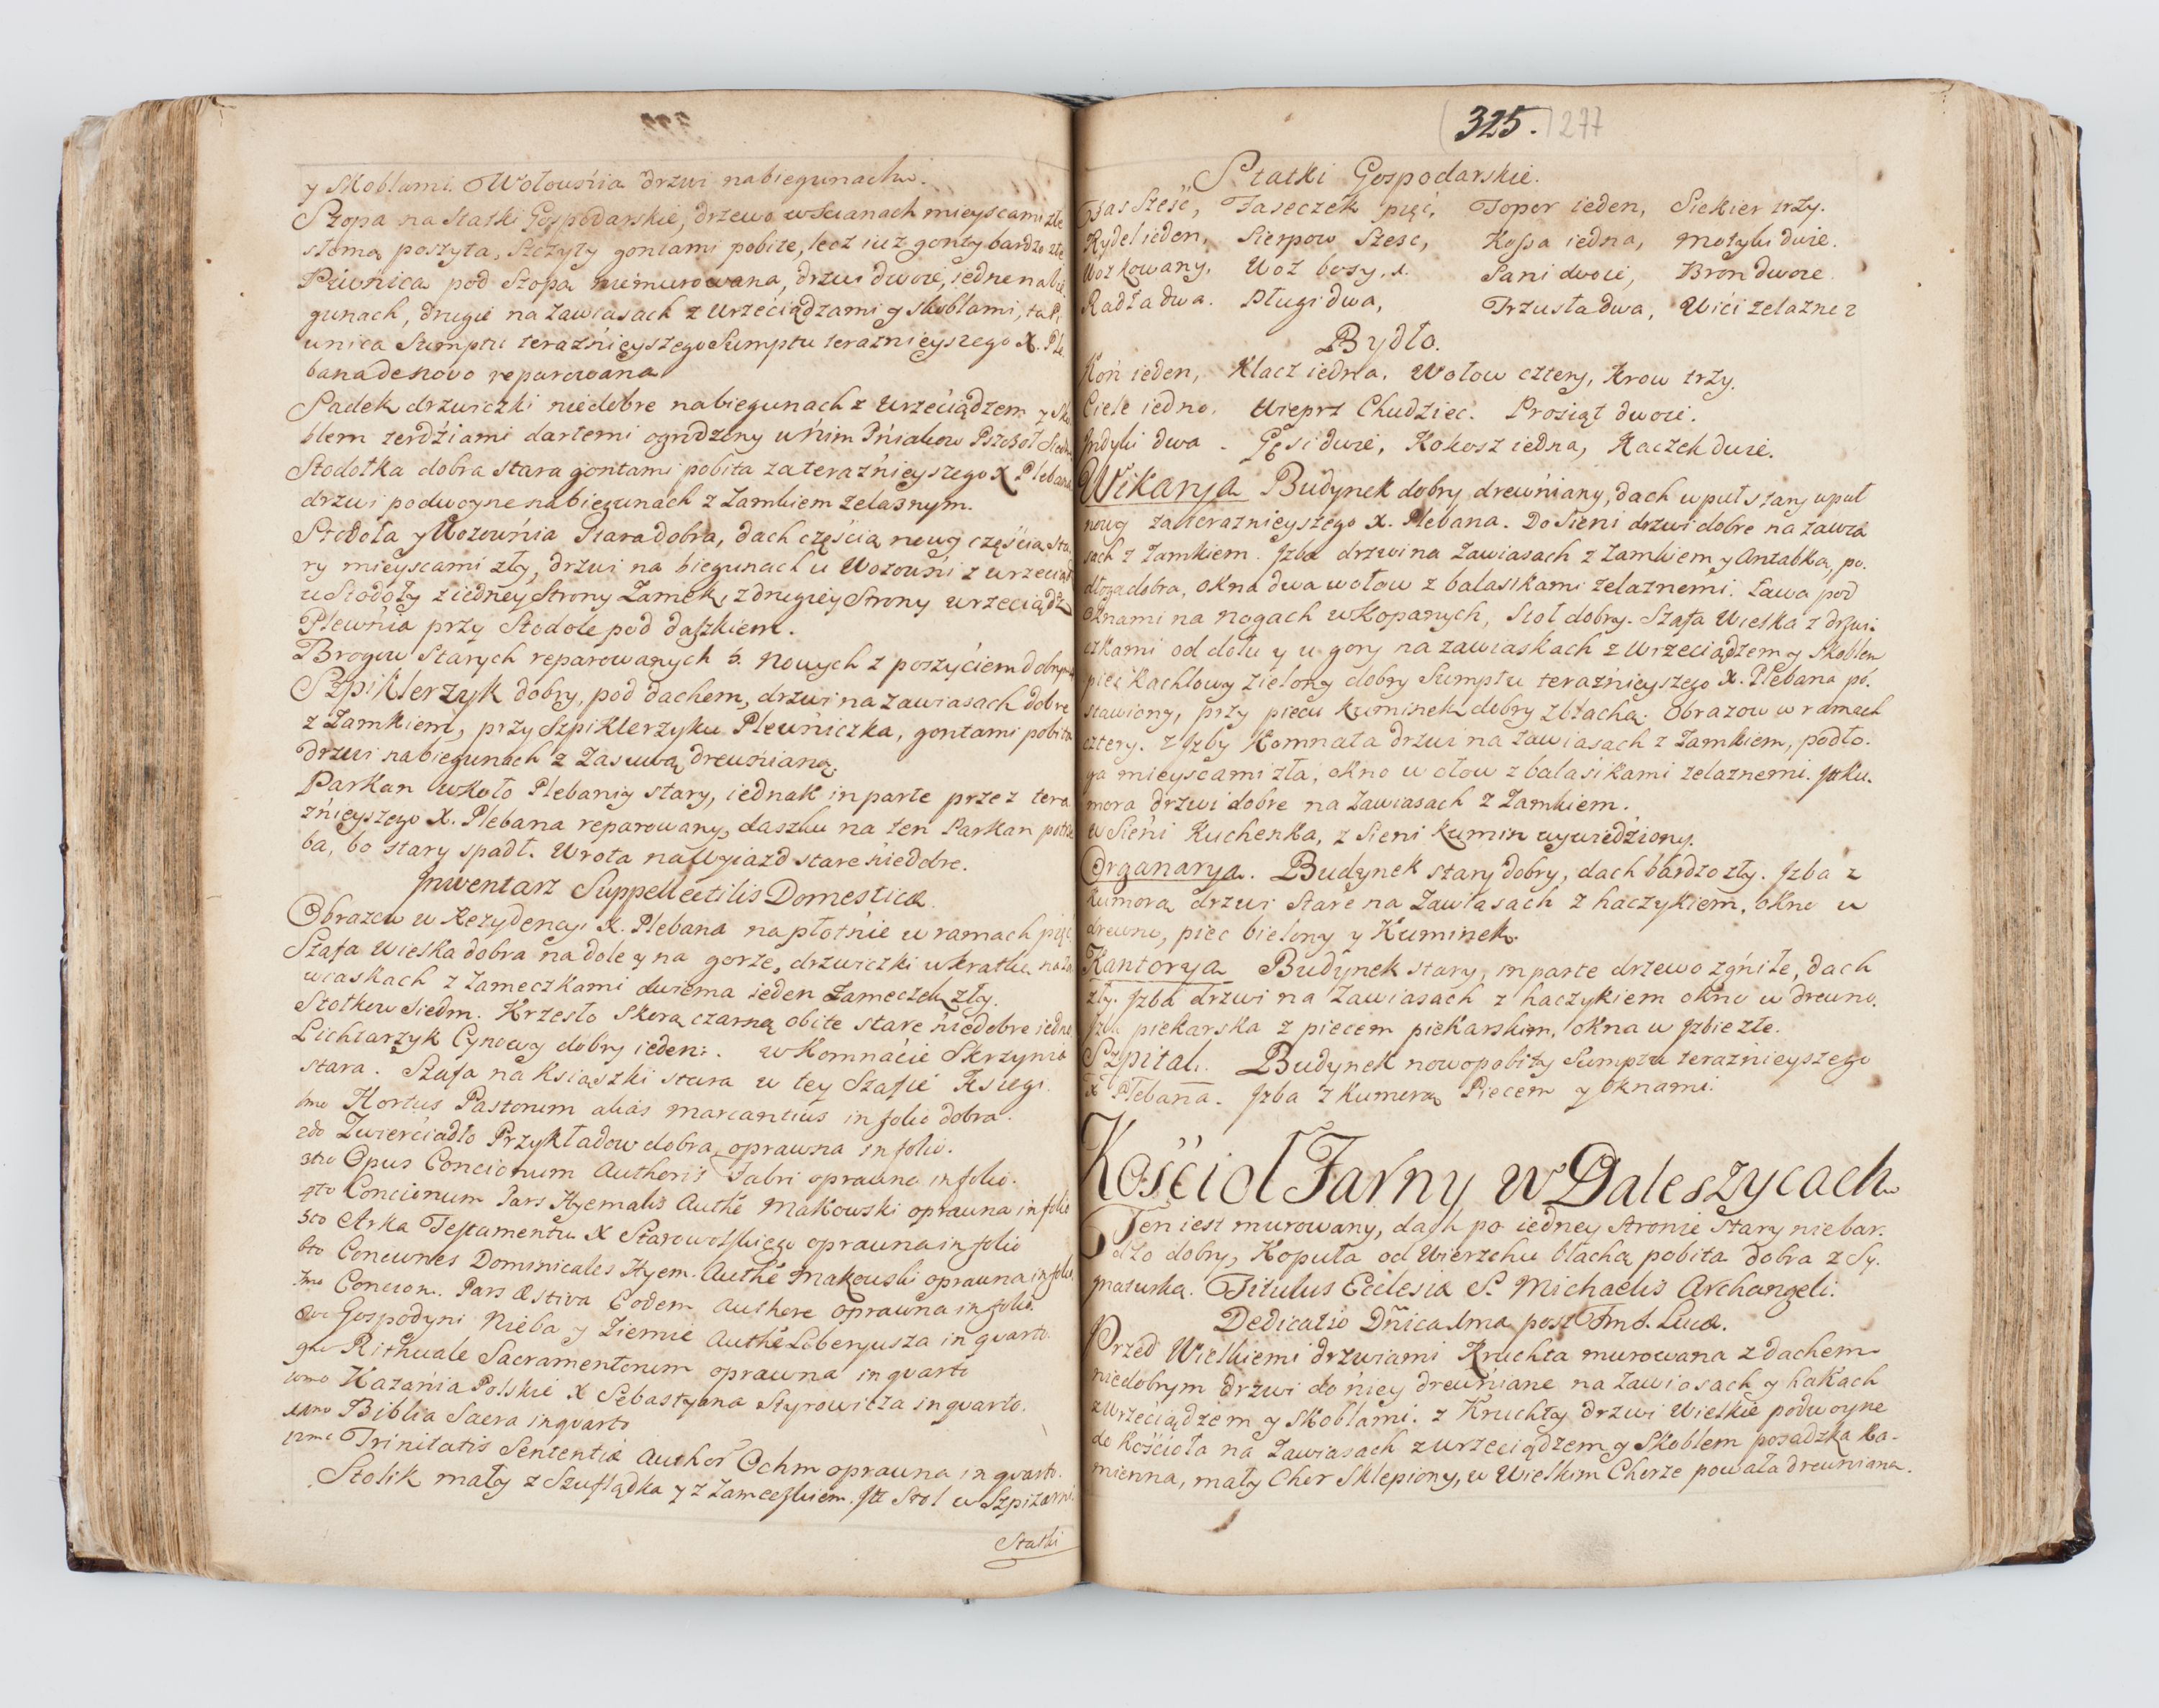 y Skoblami. Wołownia drzwi nabiegunach.
Szopa na Statki Gospodarskie, drzewo w Scianach mieyscami złe
słomą poszyta, Szczyty gontami pobite, lecz iuż gonty bardzo złe
Piwnica pod Szopą niemurowana, drzwi dwoie, iedne na bie
gunach, drugie na Zawiasach z Wrzeciądzami y Skoblami, ta Pi
wnica Sumptu teraźnieyszego Sumptu teraznieyszego X. Ple
bana de novo reparowana
Sadek drzwiczki niedobre nabiegunach z Wrzeciądzem y Sko
blem żerdźiami dartemi ogrodzony w nim Pńiakow Pszczoł Siedm
Stodołka dobra stara gontami pobita za teraźnieyszego X Plebana
drzwi podwoyne nabiegunach z Zamkiem Zelaznym.
Stodoła y Wozownia Stara dobra, dach częścią nowy częścią sta
ry mieyscami zły, drzwi na biegunach u Wozowni z wrzeciąd
u Stodoły z iedney Strony Zamek, z drugiey Strony wrzeciądz
Plewńia przy Stodole pod daszkiem.
Brogow Starych reparowanych 3. Nowych z poszyciem dobrym
Szpiklerzyk dobry, pod dachem, drzwi na Zawiasach dobre
z Zamkiem, przy Szpiklerzyku Plewniczka, gontami pobita
drzwi nabiegunach z Zasuwą drewnianą.
Parkan wkoło Plebaniy stary, iednak in parte przez tera
źnieyszego X. Plebana reparowany, daszku na ten Parkan potrze
ba, bo stary spadł. Wrota na Wyiazd stare niedobre.
Inwentarz Suppellectilis Domesticæ
Obrazow w Rezydencyi X. Plebana na płotnie w ramach pięć
Szafa Wielka dobra na dole y na gorze, drzwiczki w kratku na Za
wiaskach z Zameczkami dwiema ieden Zameczek zły.
Stołkow Siedm. Krzesło skorą czarną obite stare niedobre iedno
Lichtarzyk Cynowy dobry ieden. w Komnacie Skrzynia
stara. Szafa na Ksiąszki stara w tey Szafie Ksiegi.
1mo Hortus Pastorum alias Marcantius in folio dobra.
2do Zwierciadło Przykładow dobra oprawna in folio.
3tio Opus Concionum Authoris Fabri oprawne in folio.
4to Concionum Pars Hyemalis Authe Makowski oprawna in folio
5to Arka Testamentu X Starowolskiego oprawna in folio
6to Conciones Dominicales Hyem. Authe Makowski oprawna in folio.
7mo Concion. Pars Æstiva Eodem Authore oprawna in folio.
8vo Gospodyni Nieba y Ziemie Authe Loberyusza in qvarto.
9no Rithuale Sacramentorum oprawna in qvarto
10mo Kazańia Polskie X Sebastyana Styrowicza in qvarto.
11mo Biblia Sacra in qvarto
12mo Trinitatis Sententiæ Author Ochm oprawna in qvarto.
Stolik mały z Szufladka y z Zameczkiem. Itt Stoł w Szpizarni
Statki
325. 277
Statki Gospodarskie.
Fas Sześć, Faseczek pięc, Topor ieden, Siekier trzy.
Rydel ieden, Sierpow Szesc, Kossa iedna, Motyki dwie.
Woz kowany, Woz bosy, 1. Sani dwoie, Bron dwoie
Radła dwa. Pługi dwa, Trzusła dwa, Wići żelazne 2
Bydło.
Koń ieden, Klacz iedna. Wołow cztery, Krow trzy.
Ciele iedno. Wieprz Chudziec. Prosiąt dwoie.
Indyki dwa - Gęsi dwie, Kokosz iedna, Kaczek dwie.
Wikarya Budynek dobry drewniany, dach w puł stary w puł
nowy za teraznieyszego X. Plebana. Do Sieni drzwi dobre na zawia
sach z Zamkiem. Izba drzwi na Zawiasach z Zamkiem y Antabką, po.
dłoga dobra, okna dwa w ołow z balasikami żelaznemi. Ława pod
Oknami na nogach wkopanych, Stoł dobry. Szafa Wielka z drzwi.
czkami od dołu y u gory na zawiaskach z Wrzeciądzem y Skoblem
piec Kachlowy zielony dobry Sumptu teraźnieyszego X. Plebana po.
stawiony, przy piecu kuminek dobry z blachą. Obrazow w ramach
cztery. z Izby Komnata drzwi na Zawiasach z Zamkiem, podło.
ga mieyscami zła, okno w ołow z balaśikami żelaznemi. Itt ku.
mora drzwi dobre na Zawiasach z Zamkiem.
w Sieni Kuchenka, z Sieni kumin wywiedziony.
Organarya. Budynek stary dobry, dach bardzo zły. Izba z
kumorą drzwi Stare na Zawiasach z haczykiem, Okno w
drewno, piec bielony y Kuminek.
Kantorya Budynek stary, in parte drzewo zgniłe, dach
zły. Izba drzwi na Zawiasach z haczykiem okno w drewno.
Izba piekarska z piecem piekarskim, okna w Izbie złe.
Szpital. Budynek nowo pobity Sumptu teraznieyszego
X Plebana. Izba z Kumorą Piecem y Oknami.
Kościoł Farny w Daleszycach
Ten iest murowany, dach po iedney stronie stary niebar.
dzo dobry, Kopuła od Wierzchu blachą pobita dobra z Sy.
gnaturką. Titulus Ecclesiæ S. Michaelis Archangeli.
Dedicatio Dñica 1ma post Fm S. Lucæ.
Przed Wielkiemi drzwiami Kruchta murowana z dachem
niedobrym drzwi do niey drewniane na Zawiasach y hakach
z Wrzeciądzem y Skoblami. z Kruchty drzwi Wielkie podwoyne
do Kościoła na Zawiasach z wrzeciądzem y Skoblem posadzka ka-
mienna, mały Chor Sklepiony, w Wielkim Chorze powała drewniana.